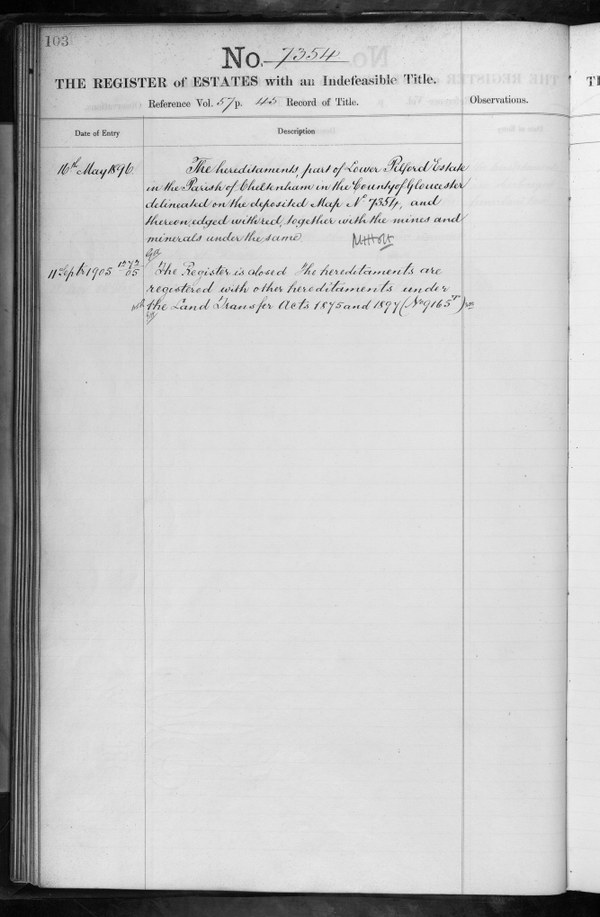 103
No. 7354
THE REGISTER of ESTATES with an Indefeasible Title.
Reference Vol. 57/p. 45 Record of Title.
Observations.
Date of Entry
Description
16th May 1896.
The hereditaments, part of Lower Pilford Estate
in the Parish of Cheltenham in the County of Gloucester
delineated on the deposited Map No 7354, and
thereon edged with red, together with the mines and
minerals under the same
11 Septr 1905
The Register is closed The hereditaments are
registered with other hereditaments under
the Land Transfer Acts 1875 and 1897 (No 9165